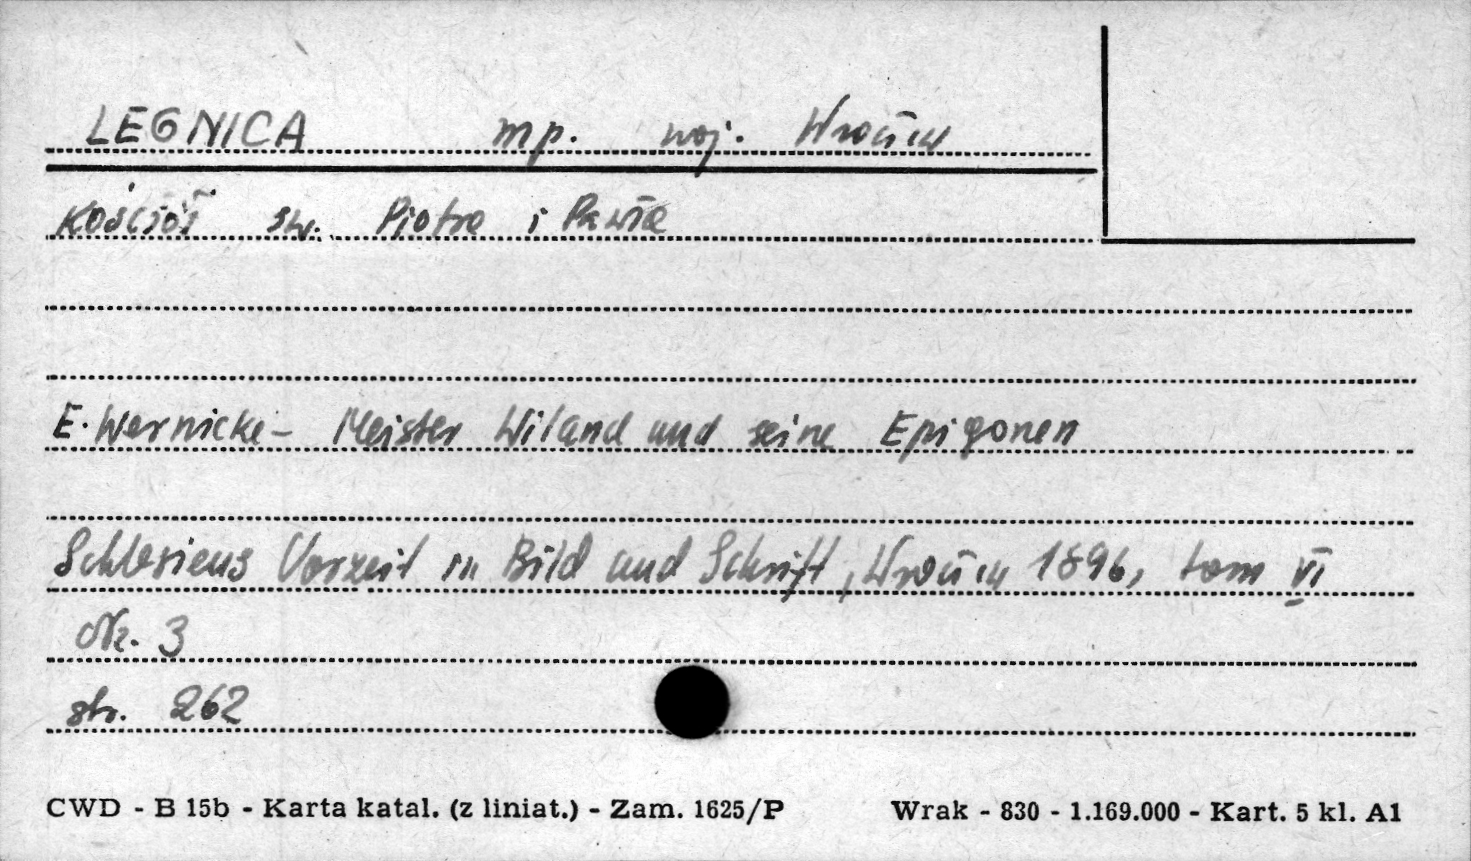 LEGNICA mp. woj. Wrocław
Kościół św. Piotra i Pawła
E. Wernicke - Meister Wiland und seine Epigonen
Schlesiens Vorzeit in Bild und Schrift, Wrocław 1896, tom VI
Nr. 3
str. 262
CWD - B 15b - Karta katal. (z liniat.) - Zam. 1625/P Wrak - 830 - 1.169.000 - Kart. 5 kl. A1